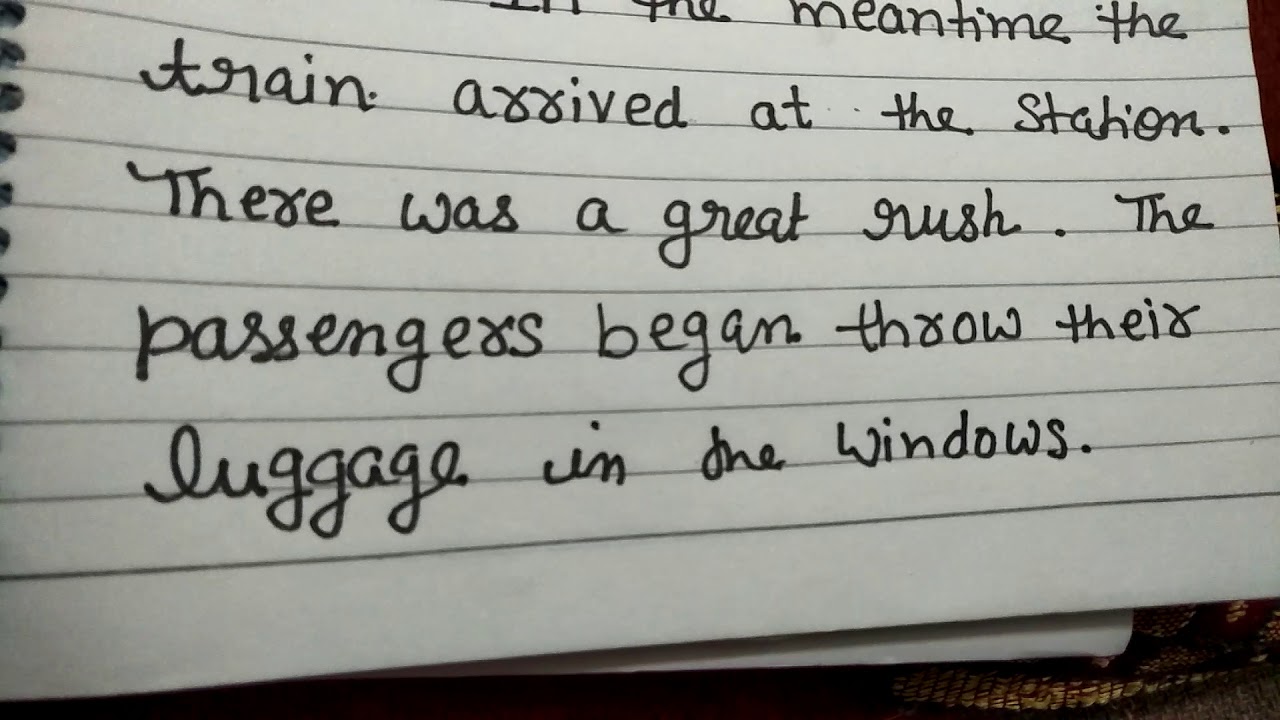 In the meantime the
train arrived at the Station.
There was a great rush. The
passengers began throw their
luggage in the windows.